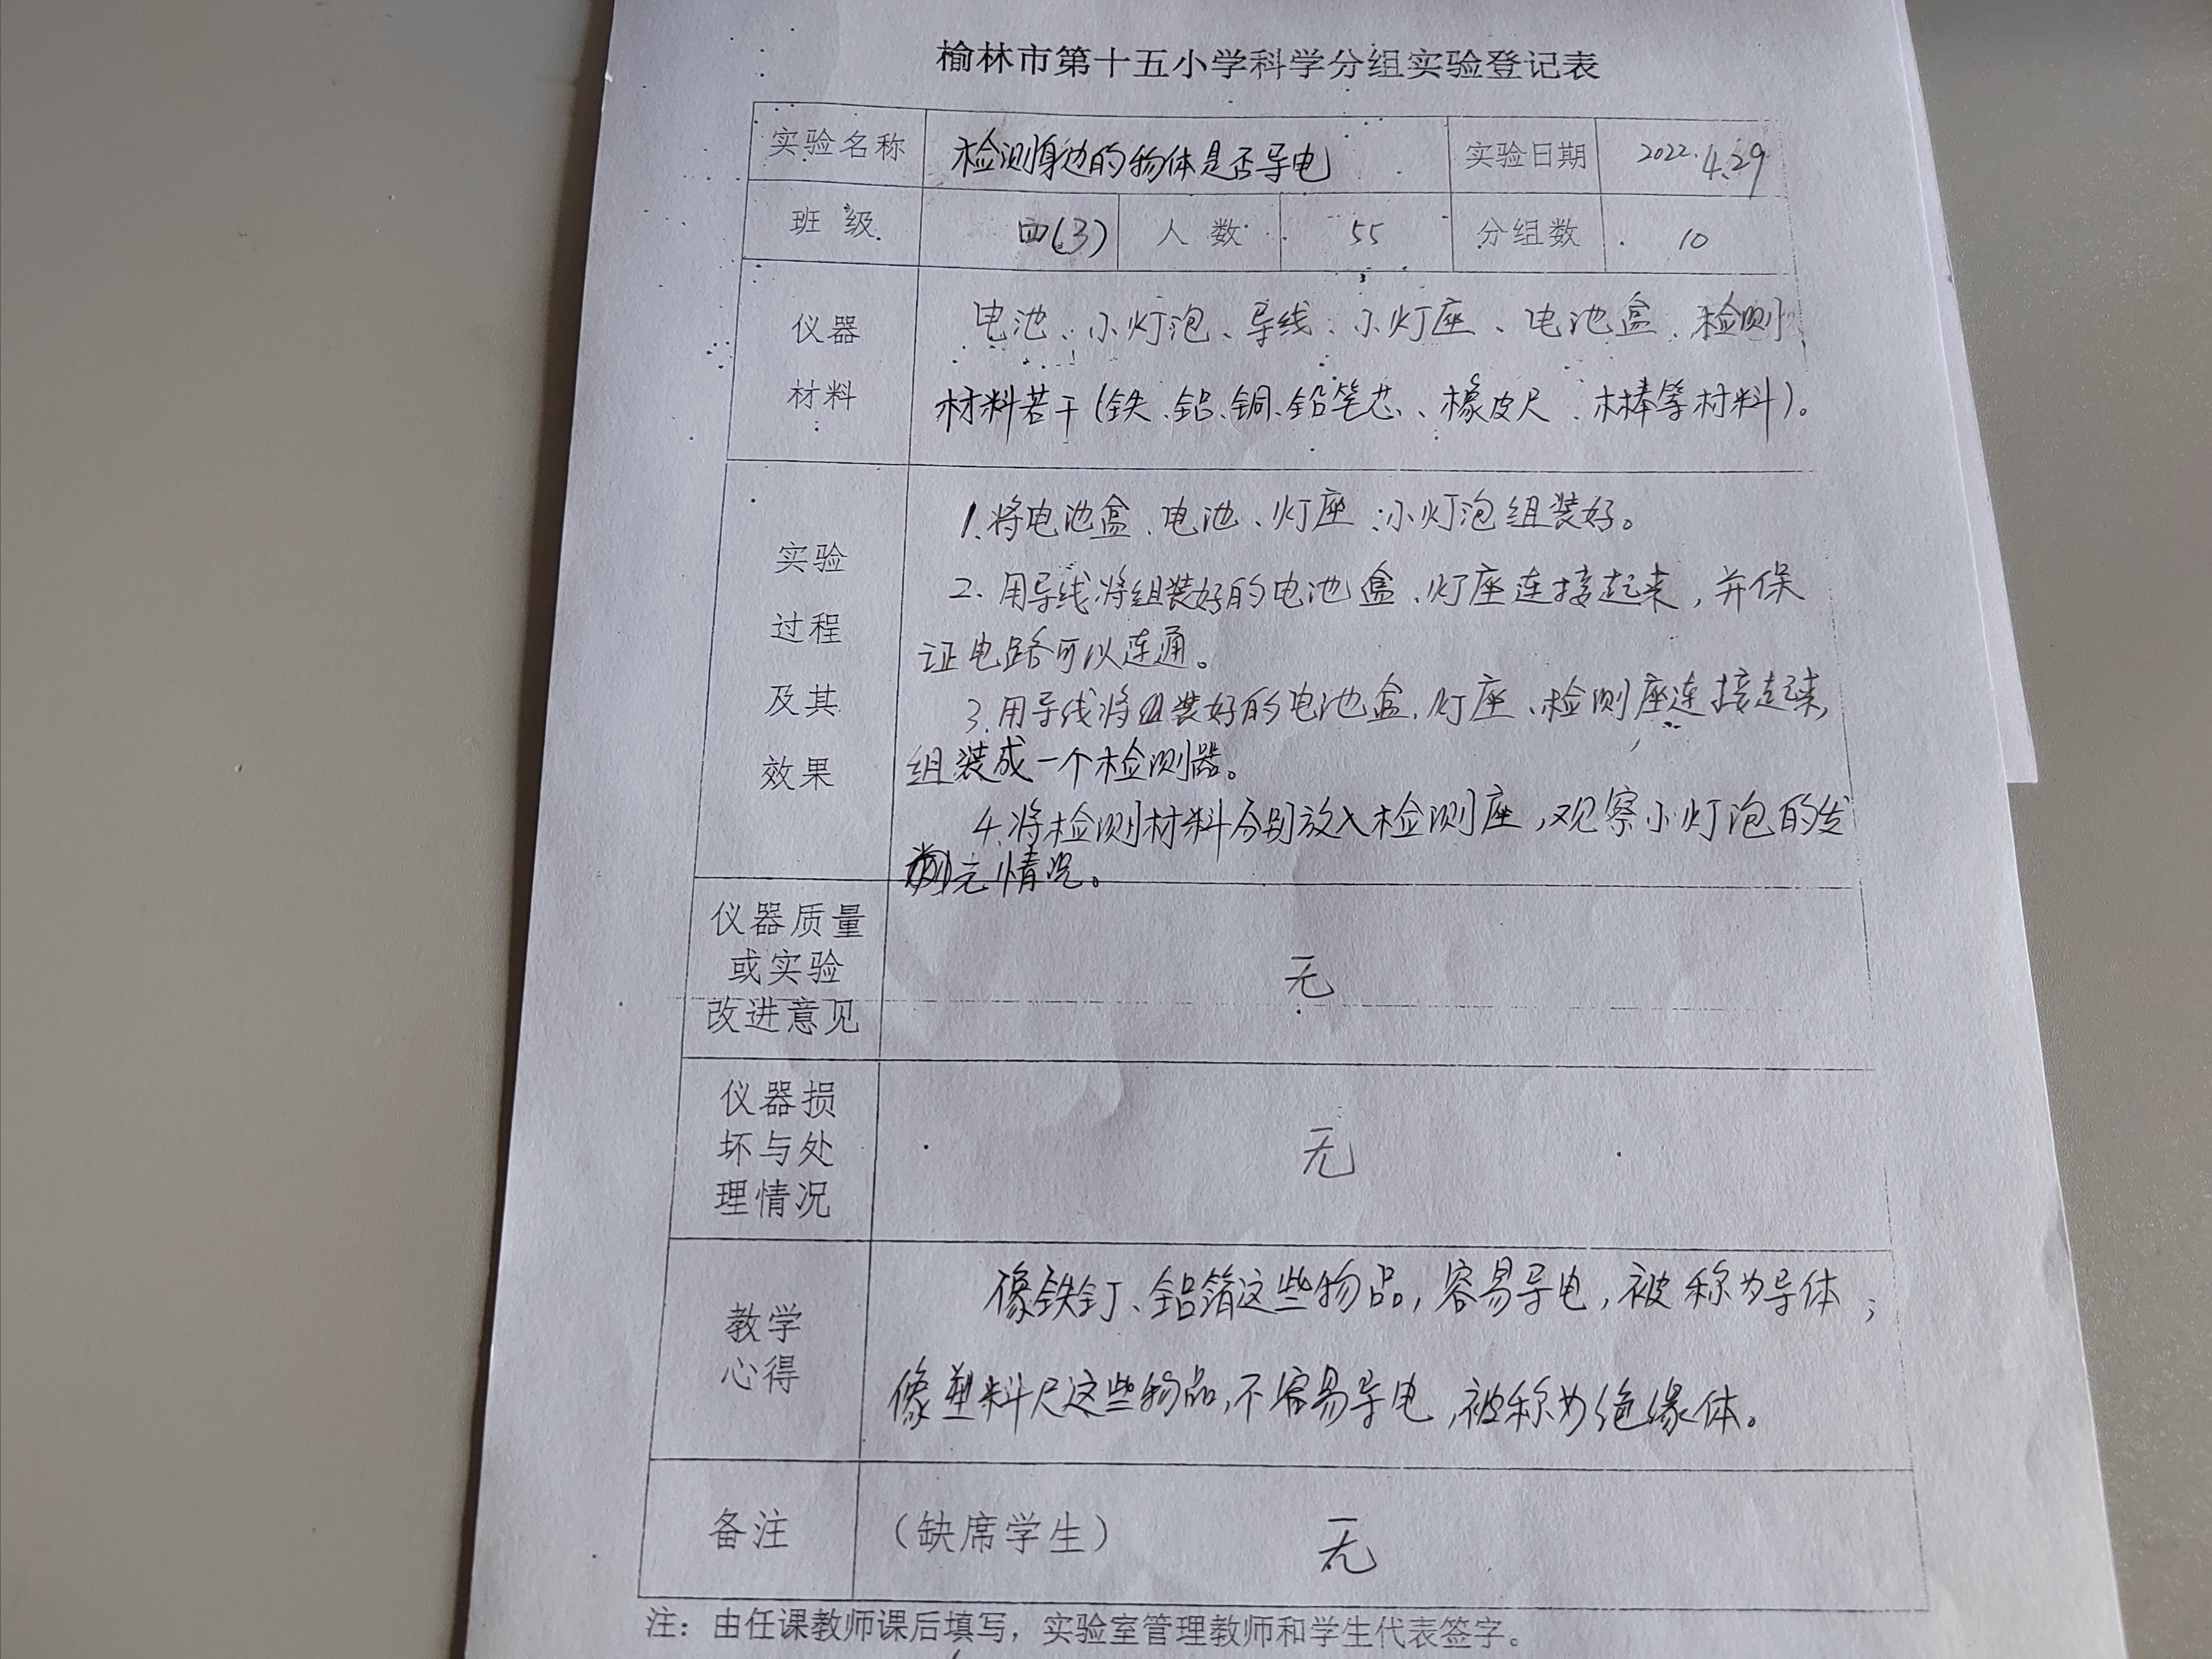 榆林市第十五小学科学分组实验登记表
实验名称 检测身边的物体是否导电 实验日期 2022.4.29
班级 四(3) 人数 55 分组数 10
仪器 电池、小灯泡、导线、小灯座、电池盒、检测
材料 材料若干(铁、铝、铜、铅笔芯、橡皮尺、木棒等材料)。
1.将电池盒、电池、灯座、小灯泡组装好。
实验 2、用导线将组装好的电池盒、灯座连接起来，并保
过程 证电路可以连通。
及其 3.用导线将组装好的电池盒、灯座、检测座连接起来，
效果 组装成一个检测器。
4.将检测材料分别放入检测座，观察小灯泡的发
亮情况。
仪器质量
或实验 无
改进意见
仪器损
坏与处 无
理情况
像铁钉、铝箔这些物品，容易导电，被称为导体；
教学
心得 像塑料尺这些物品，不容易导电，被称为绝缘体。
备注 （缺席学生） 无
注：由任课教师课后填写，实验室管理教师和学生代表签字。